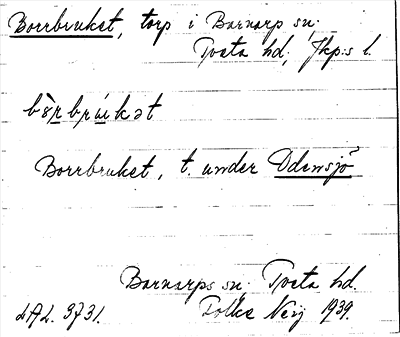 Borrbruket, torp i Barnarp sn.
Tveta hd, Jkp:s l.
bòrbrúkət
Borrbruket, t. under Odensjö
Barnarps sn. Tveta hd.
LAL. 3731. Folke Nerj 1939.